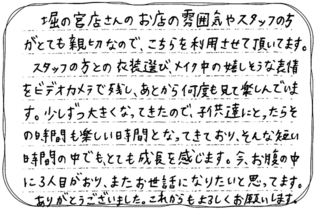 堀の宮店さんのお店の雰囲気やスタッフの方
がとても親切なので、こちらを利用させて頂いてます。
スタッフの方との衣装選び、メイク中の嬉しそうな表情
をビデオカメラで残し、あとから何度も見て楽しんでいま
す。少しずつ大きくなってきたので、子供達にとったらそ
の時間も楽しい時間となってきており、そんな短い
時間の中でもとても成長を感じます。今、お腹の中
に3人目がおり、またお世話になりたいと思ってます。
ありがとうございました。これからもよろしくお願いします。